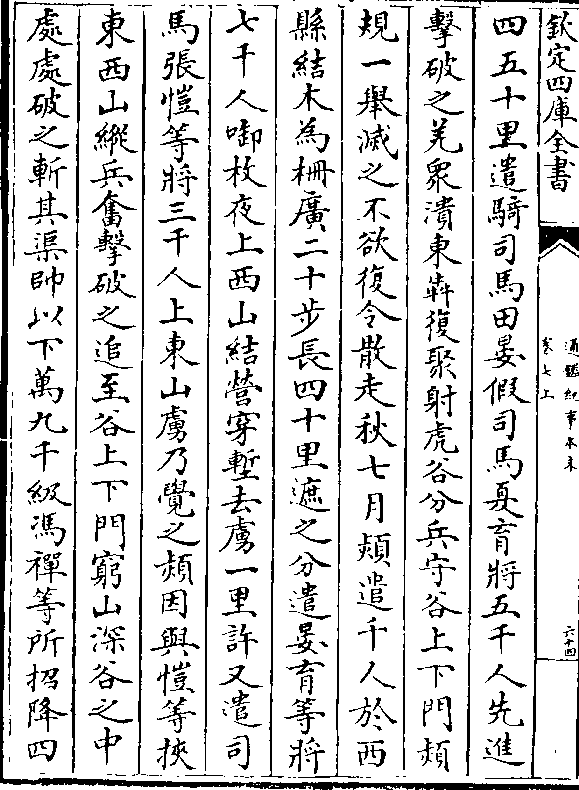 欽定四庫全書
通鑑紀事本末
卷七上
六十四
四五十里遣騎司馬田晏假司馬夏育將五千人先進
擊破之羌衆潰東奔復聚射虎谷分兵守谷上下門熲
規一舉滅之不欲復令散走秋七月熲遣千人於西
縣結木為柵廣二十步長四十里遮之分遣晏育等將
七千人啣枚夜上西山結營穿塹去虜一里許又遣司
馬張愷等將三千人上東山虜乃覺之熲因與愷等挾
東西山縱兵奮擊破之追至谷上下門窮山深谷之中
處處破之斬其渠帥以下萬九千級馮禪等所招降四